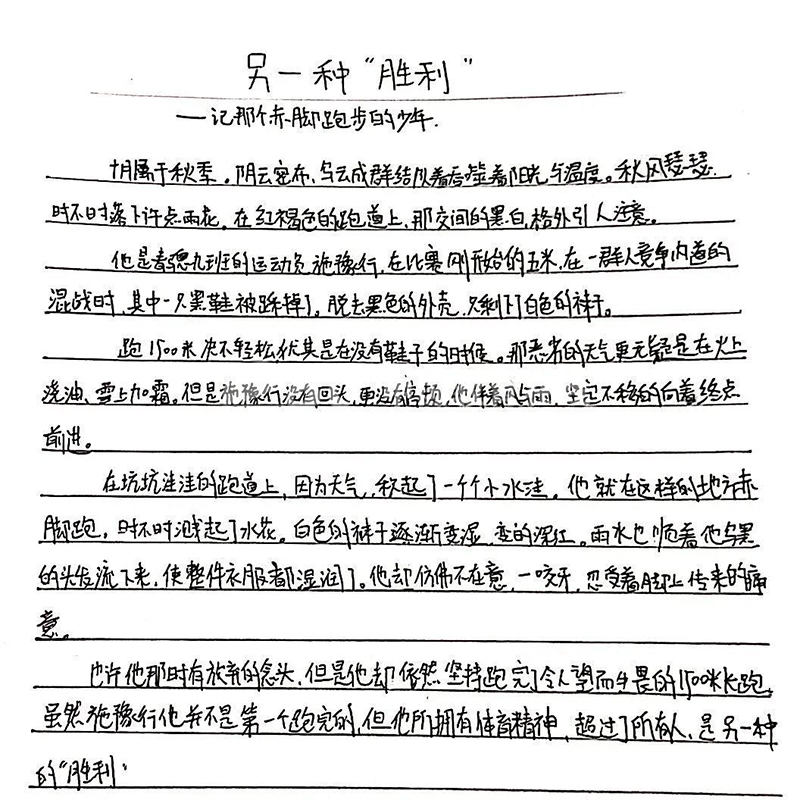 另一种“胜利”
——记那个赤脚跑步的少年.
十月属于秋季。阴云密布、乌云成群结队着吞噬着阳光与温度。秋风瑟瑟.
时不时落下许点雨花。在红褐色的跑道上,那交间的黑白,格外引人注意。
他是春骢九班的运动员施豫行,在比赛刚开始的五米,在一群人竞争内道的
混战时,其中一只黑鞋被踩掉了。脱去黑色的外壳,只剩下了白色的袜子。
跑1500米决不轻松,犹其是在没有鞋子的时候。那恶劣的天气更无疑是在火上
浇油、雪上加霜。但是施豫行没有回头,更没有停顿,他伴着风与雨,坚定不移的向着终点
前进。
在坑坑洼洼的跑道上,因为天气,积起了一个个小水洼。他就在这样的地方赤
脚跑,时不时溅起了水花。白色的袜子逐渐变湿,变的深红。雨水也顺着他乌黑
的头发流下来,使整件衣服都湿润了。他却仿佛不在意,一咬牙,忍受着脚上传来的痛
意。
也许他那时有放弃的念头,但是他却依然坚持跑完了令人望而生畏的1500米长跑,
虽然施豫行他并不是第一个跑完的,但他所拥有体育精神,超过了所有人,是另一种
的“胜利”